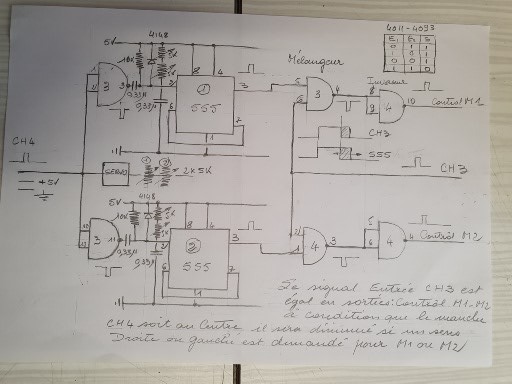 4011-4093
E1 E2 S
0 0 1
0 1 1
1 0 1
1 1 0
5V
4148
10K
5K
0,33µF
0,33µF
1
555
8
4
3
6
2
7
1
Mélangeur
Inverseur
5
6
3
4
8
9
4
10
Contrôl M1
CH3
555
CH4
+5V
SERVO
1
2
2x5K
CH3
5V
4148
10K
5K
12
13
3
11
0,33µF
0,33µF
2
555
8
4
3
6
7
1
2
4
3
5
6
4
4
Contrôl M2
Le signal Entrée CH3 est
égal en sorties: Contrôl M1-M2
à condition que le manche
CH4 soit au Centre il sera diminué si un sens
Droite ou gauche est demandé pour M1 ou M2